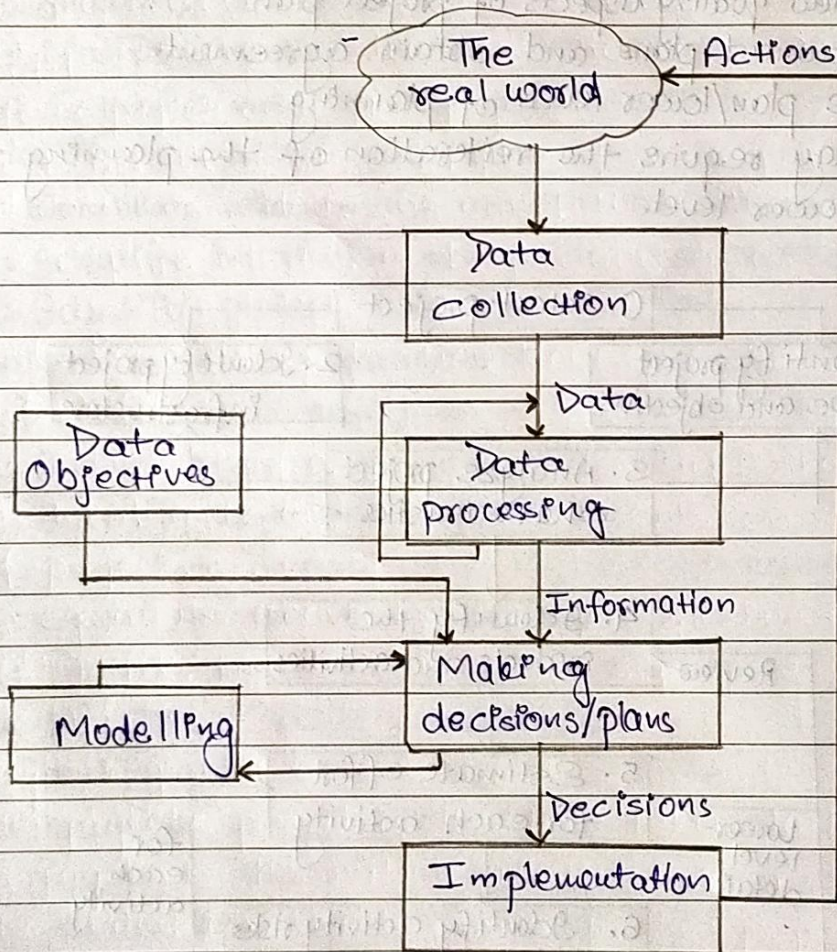 The
real world
Actions
Data
collection
Data
Data
Objectives
Data
processing
Information
Making
decisions/plans
Modelling
Decisions
Implementation